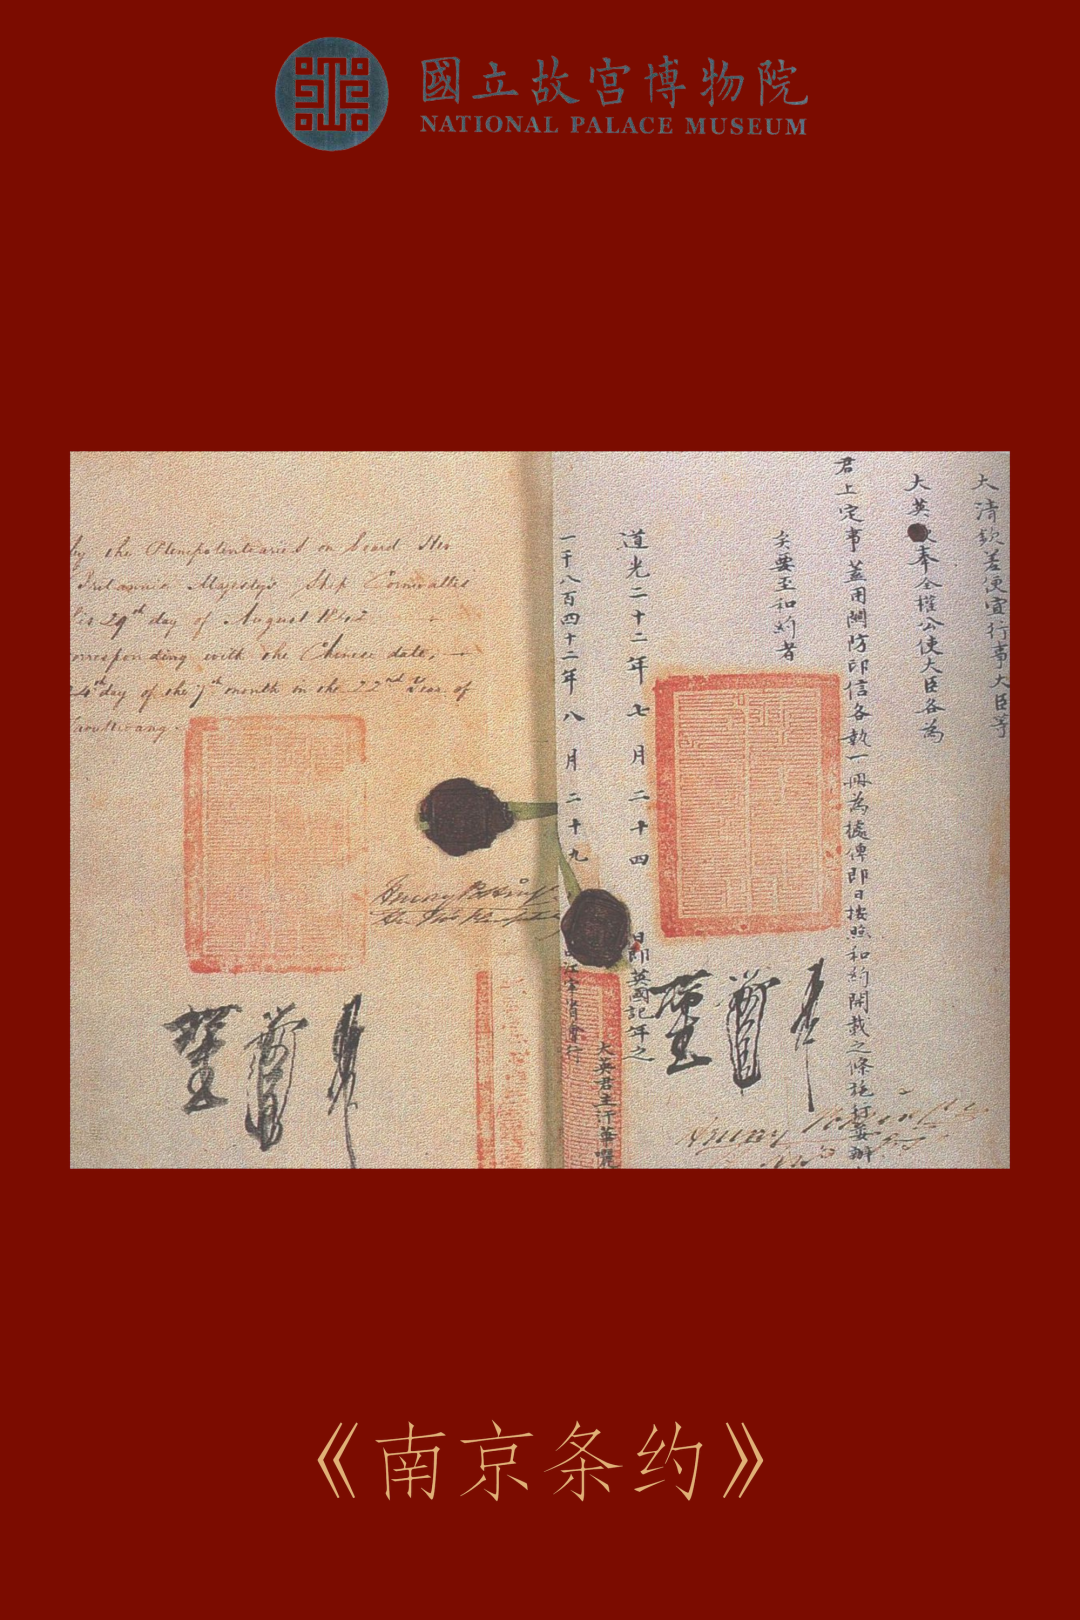 國立故宮博物院
NATIONAL PALACE MUSEUM
by the Plenipotentiaries on board Her
Britannic Majesty's Ship Cornwallis
29th day of August 1842
corresponding with the Chinese date,
24th day of the 7th month in the 22nd Year of
大清欽差便宜行事大臣等
大英 奉全權公使大臣各為
君上定事蓋用關防印信各執一冊為據俾即日按照和約開載之條施行妥辦
矣要至和約者
道光二十二年七月二十四日即英國記年之
一千八百四十二年八月二十九
大英君主汗華囉
《南京条约》